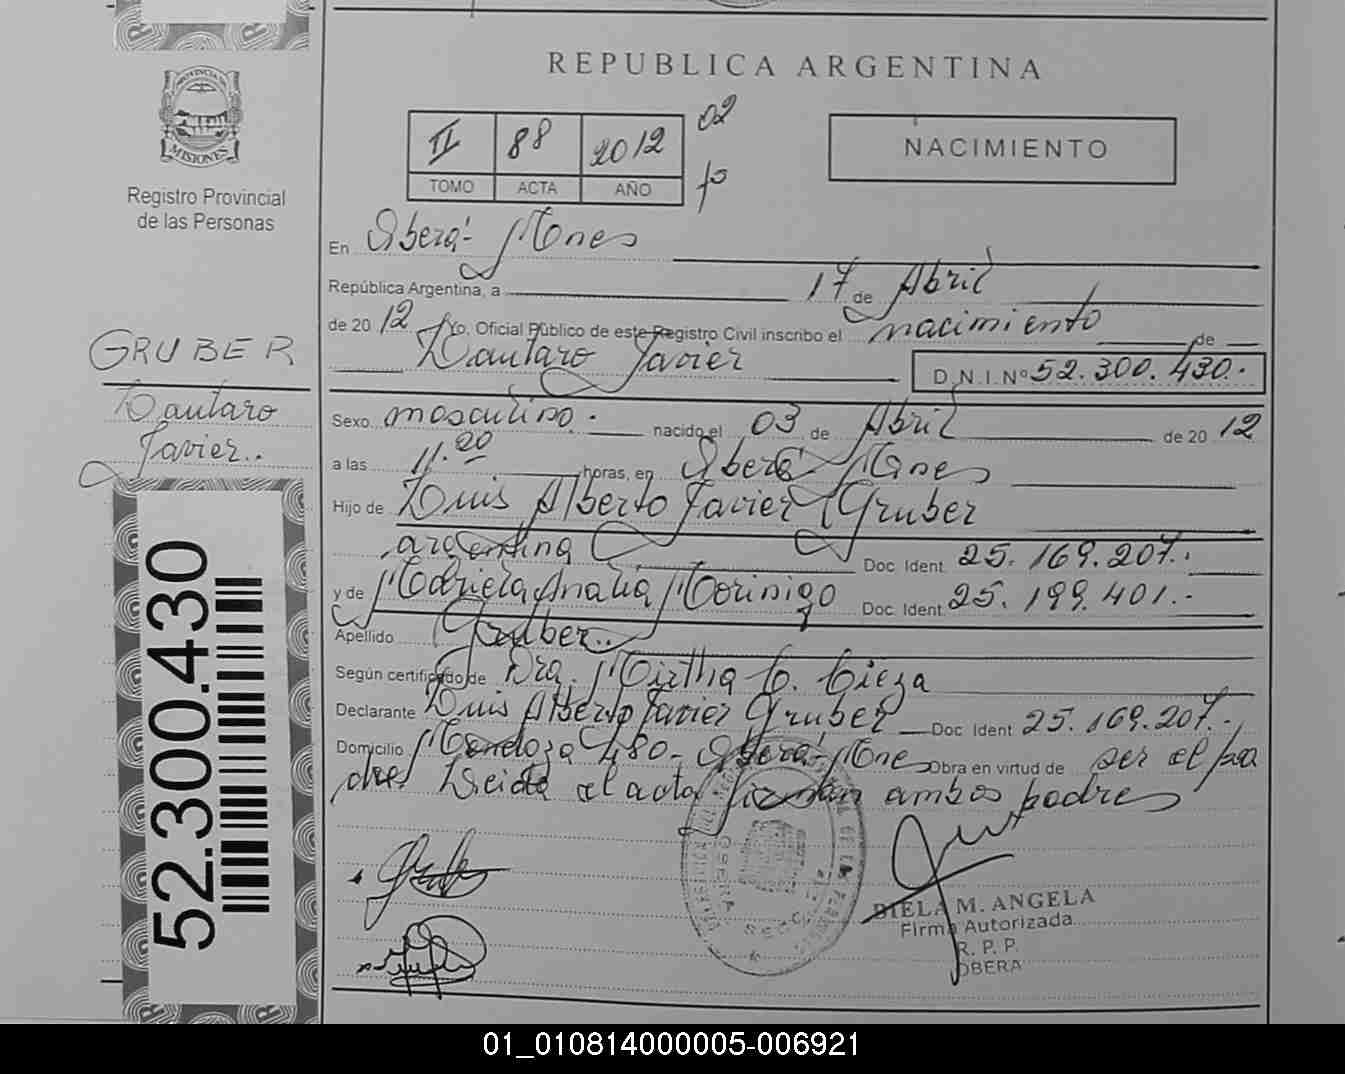 REPUBLICA ARGENTINA
PROVINCIA DE
MISIONES
Registro Provincial
de las Personas
II 88 2012 02
TOMO ACTA AÑO
NACIMIENTO
En Oberá - Mnes
República Argentina, a 17 de Abril
de 2012 Yo, Oficial Público de este Registro Civil inscribo el nacimiento de
Lautaro Javier D.N.I. Nº 52.300.430.
GRUBER
Lautaro
Javier..
Sexo masculino. nacido el 03 de Abril de 2012
a las 11.20 horas, en Oberá - Mnes
Hijo de Luis Alberto Javier Gruber
argentina Doc. Ident. 25.169.207.-
y de Mariela Analia Morinigo Doc. Ident. 25.199.401.-
Apellido Gruber..
Según certificado de Dra. Mirtha C. Cieza
Declarante Luis Alberto Javier Gruber Doc Ident 25.169.207.-
Domicilio Mendoza 480 - Oberá - Mnes Obra en virtud de ser el pa
dre. Leida el acta firman ambos padres
52.300.430
OBERA
BIELA M. ANGELA
Firma Autorizada
R. P. P.
OBERA
01_010814000005-006921